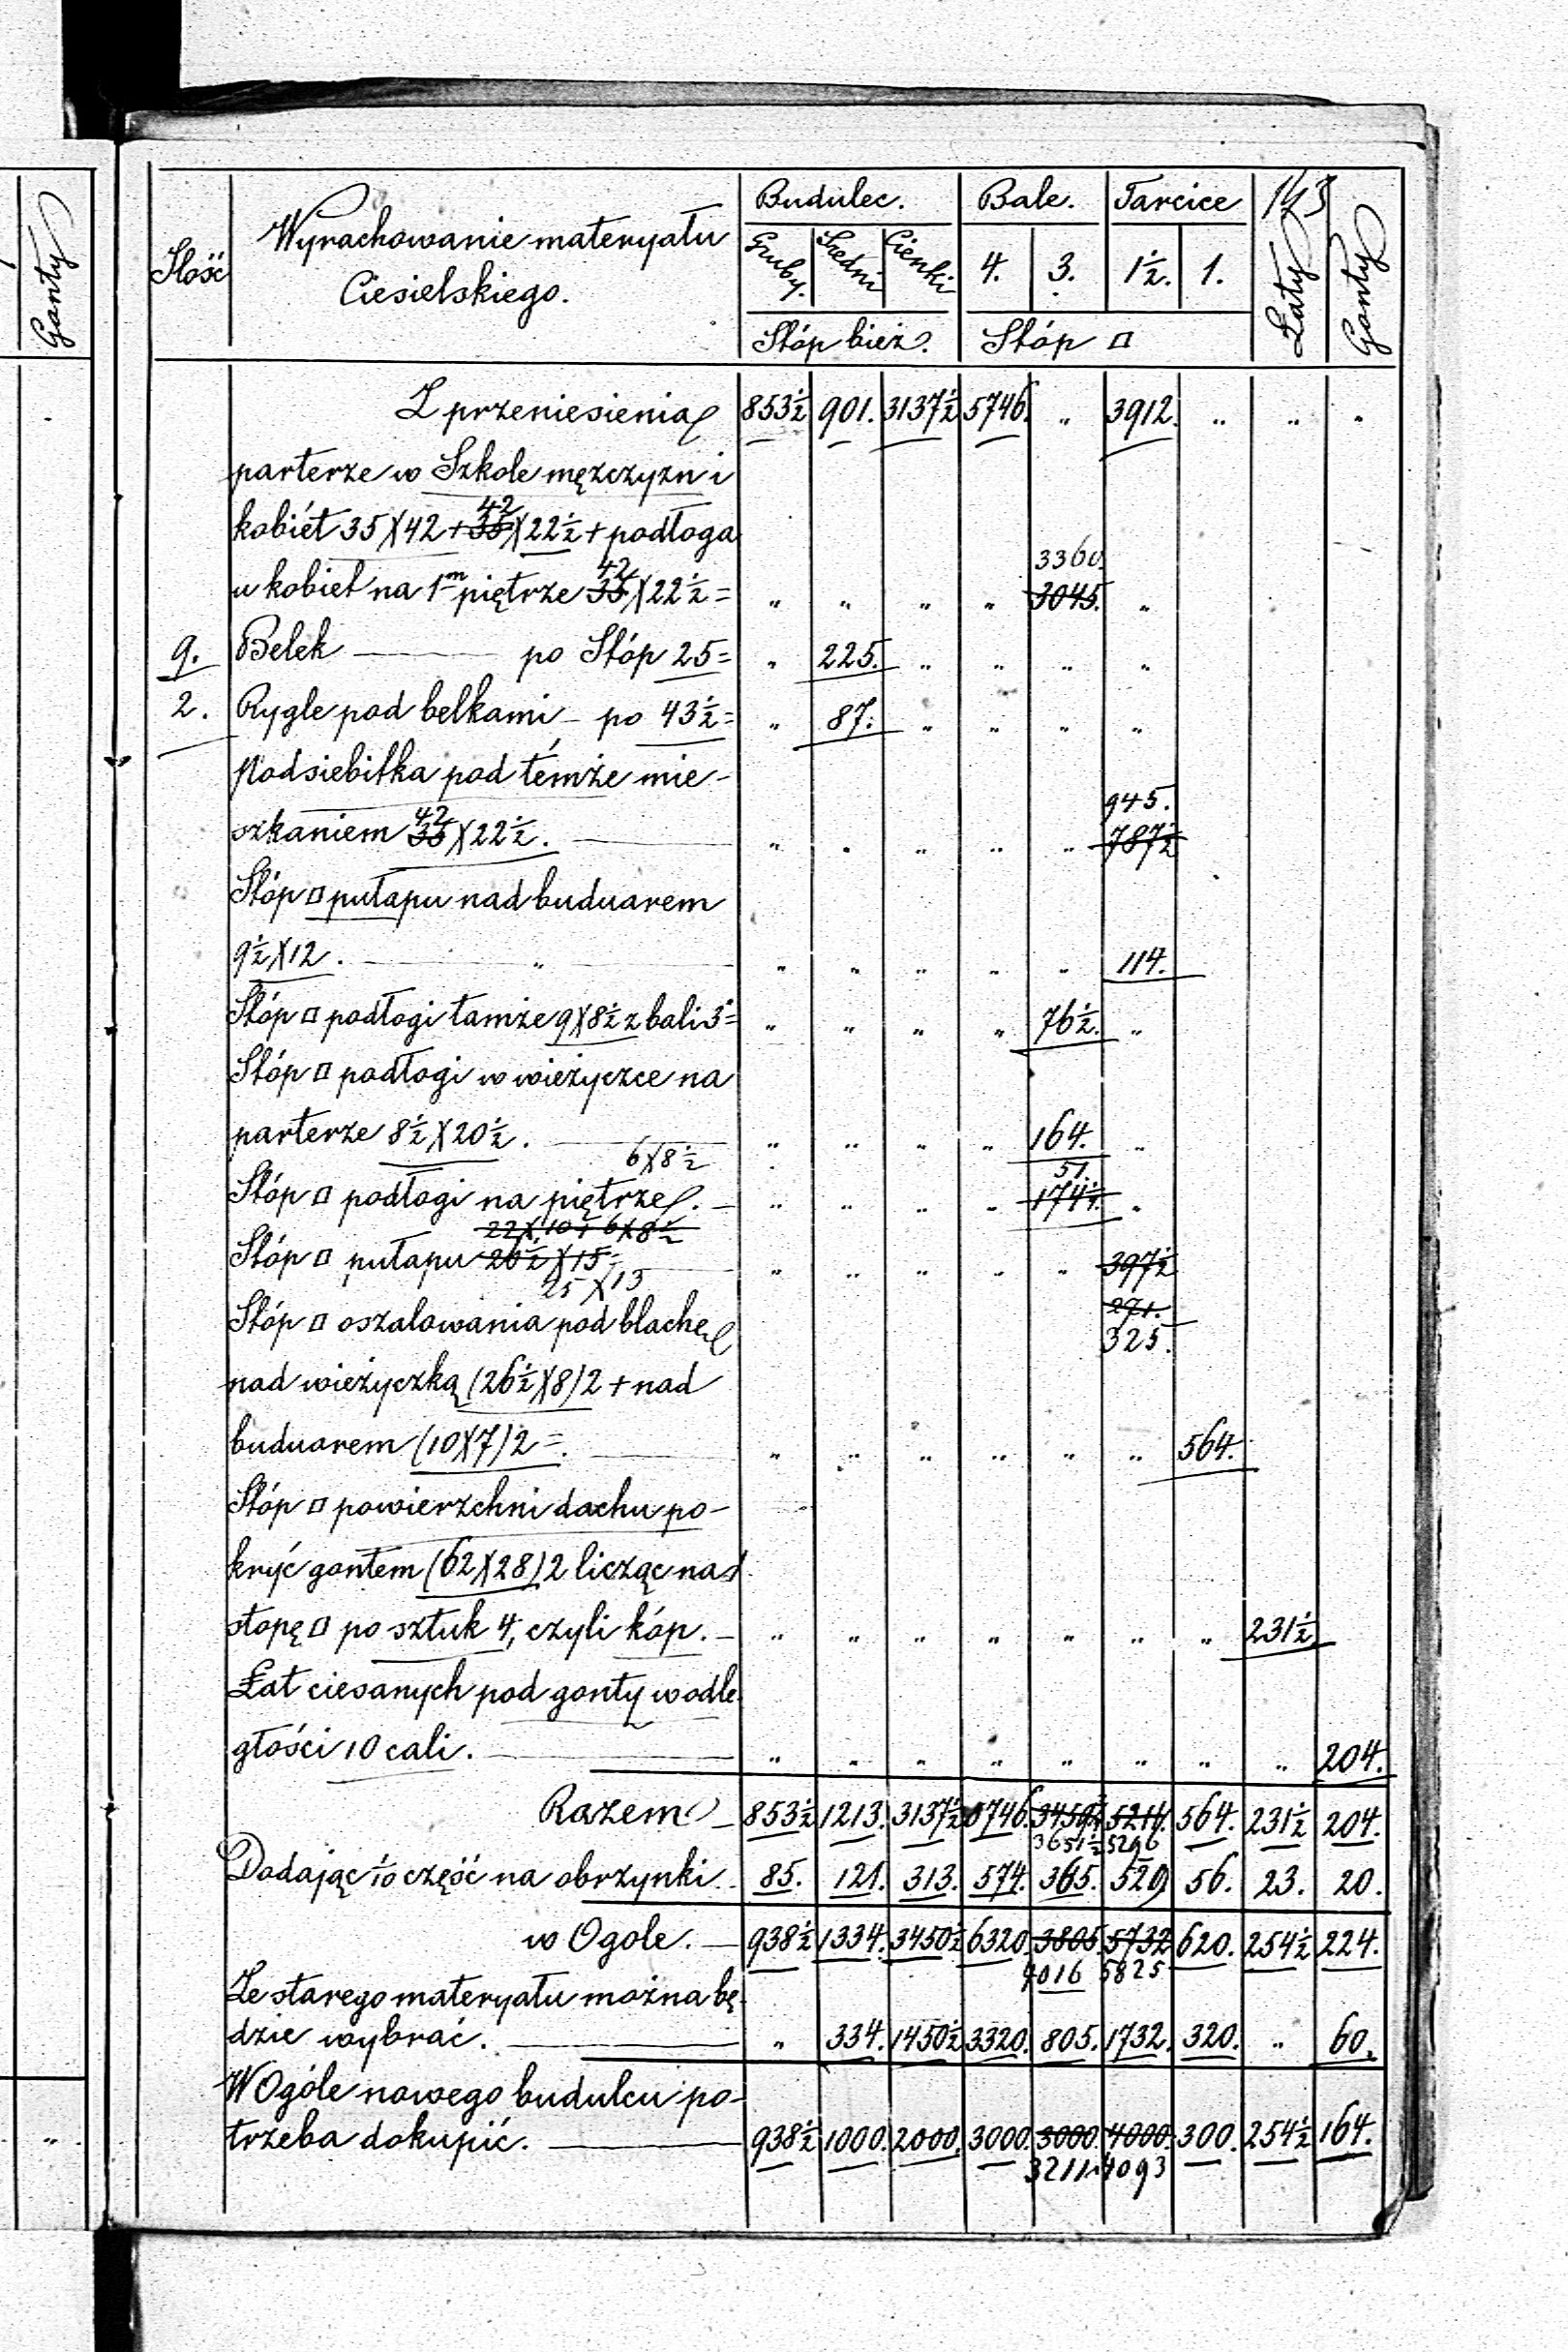 Gonty
143
Ilość
Wyrachowanie materyału
Ciesielskiego.
Budulec. Bale. Tarcice Łaty Gonty
Gruby. Średni Cienki 4. 3. 1½. 1.
Stóp bież. Stóp □
Z przeniesienia 853½ 901. 3137½ 5746. " 3912. " " "
parterze w Szkole mężczyzn i
42
kobiét 35X42+35X22½+podłoga
42 3360.
u kobiet na 1m piętrze 35X22½= " " " " 3045. "
9. Belek — po Stóp 25= " 225. " " " "
2. Rygle pod belkami – po 43½= " 87. " " " "
Podsiebitka pod témże mie-
42 945.
szkaniem 35X22½. — " " " " " 787½
Stóp □ pułapu nad buduarem
9½X12. — " " " " " " 114.
Stóp □ podłogi tamże 9X8½ z bali 3"= " " " " 76½. "
Stóp □ podłogi w wieżyczce na
parterze 8½X20½. — " " " " 164. "
6X8½ 51.
Stóp □ podłogi na piętrze. – " " " " 174¼. "
22X10+6X8½
Stóp □ pułapu 26½X15= — " " " " " 397½
25X13 271.
Stóp □ oszalowania pod blachę 325.
nad wieżyczką (26½X8)2+nad
buduarem (10X7)2=. — " " " " " " 564.
Stóp □ powierzchni dachu po-
kryć gontem (62X28)2 licząc na
stopę □ po sztuk 4, czyli kóp. – " " " " " " " 231½
Łat ciesanych pod gonty w odle
głości 10 cali. — " " " " " " " " 204.
Razem – 853½ 1213. 3137½ 5746. 3459¾ 5211. 564. 231½ 204.
3651½ 5296
Dodając 1/10 część na obrzynki 85. 121. 313. 574. 365. 529 56. 23. 20.
w Ogole. — 938½ 1334. 3450½ 6320. 3805 5732 620. 254½ 224.
4016 5825
Ze starego materyału można bę-
dzie wybrać. — " 334. 1450½ 3320. 805. 1732. 320. " 60.
W Ogóle nowego budulcu po-
trzeba dokupić. — 938½ 1000. 2000. 3000. 3000. 4000. 300. 254½ 164.
3211 4093